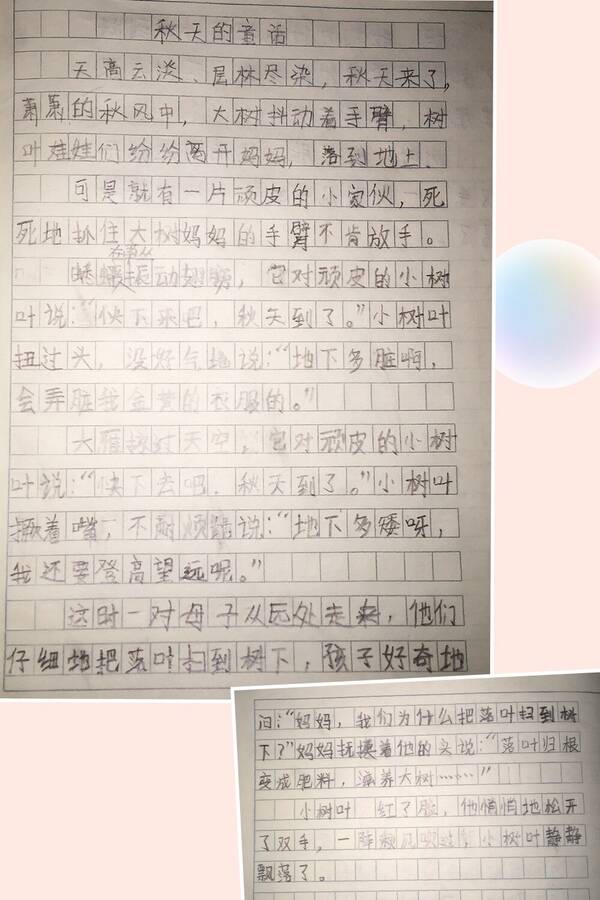 秋天的童话
天高云淡、层林尽染,秋天来了,
萧萧的秋风中,大树抖动着手臂,树
叶娃娃们纷纷离开妈妈,落到地上.
可是就有一片顽皮的小家伙,死
死地抓住大树妈妈的手臂不肯放手。
蟋蟀振动翅膀,它对顽皮的小树
叶说:“快下来吧,秋天到了。”小树叶
扭过头,没好气地说:“地下多脏啊,
会弄脏我金黄的衣服的。”
大雁掠过天空,它对顽皮的小树
叶说:“快下去吧,秋天到了。”小树叶
撅着嘴,不耐烦地说:“地下多矮呀,
我还要登高望远呢。”
这时一对母子从远处走来,他们
仔细地把落叶扫到树下,孩子好奇地
问:“妈妈,我们为什么把落叶扫到树
下?”妈妈抚摸着他的头说:“落叶归根
变成肥料,滋养大树……”
小树叶 红了脸,他悄悄地松开
了双手,一阵秋风吹过,小树叶静静
飘落了。